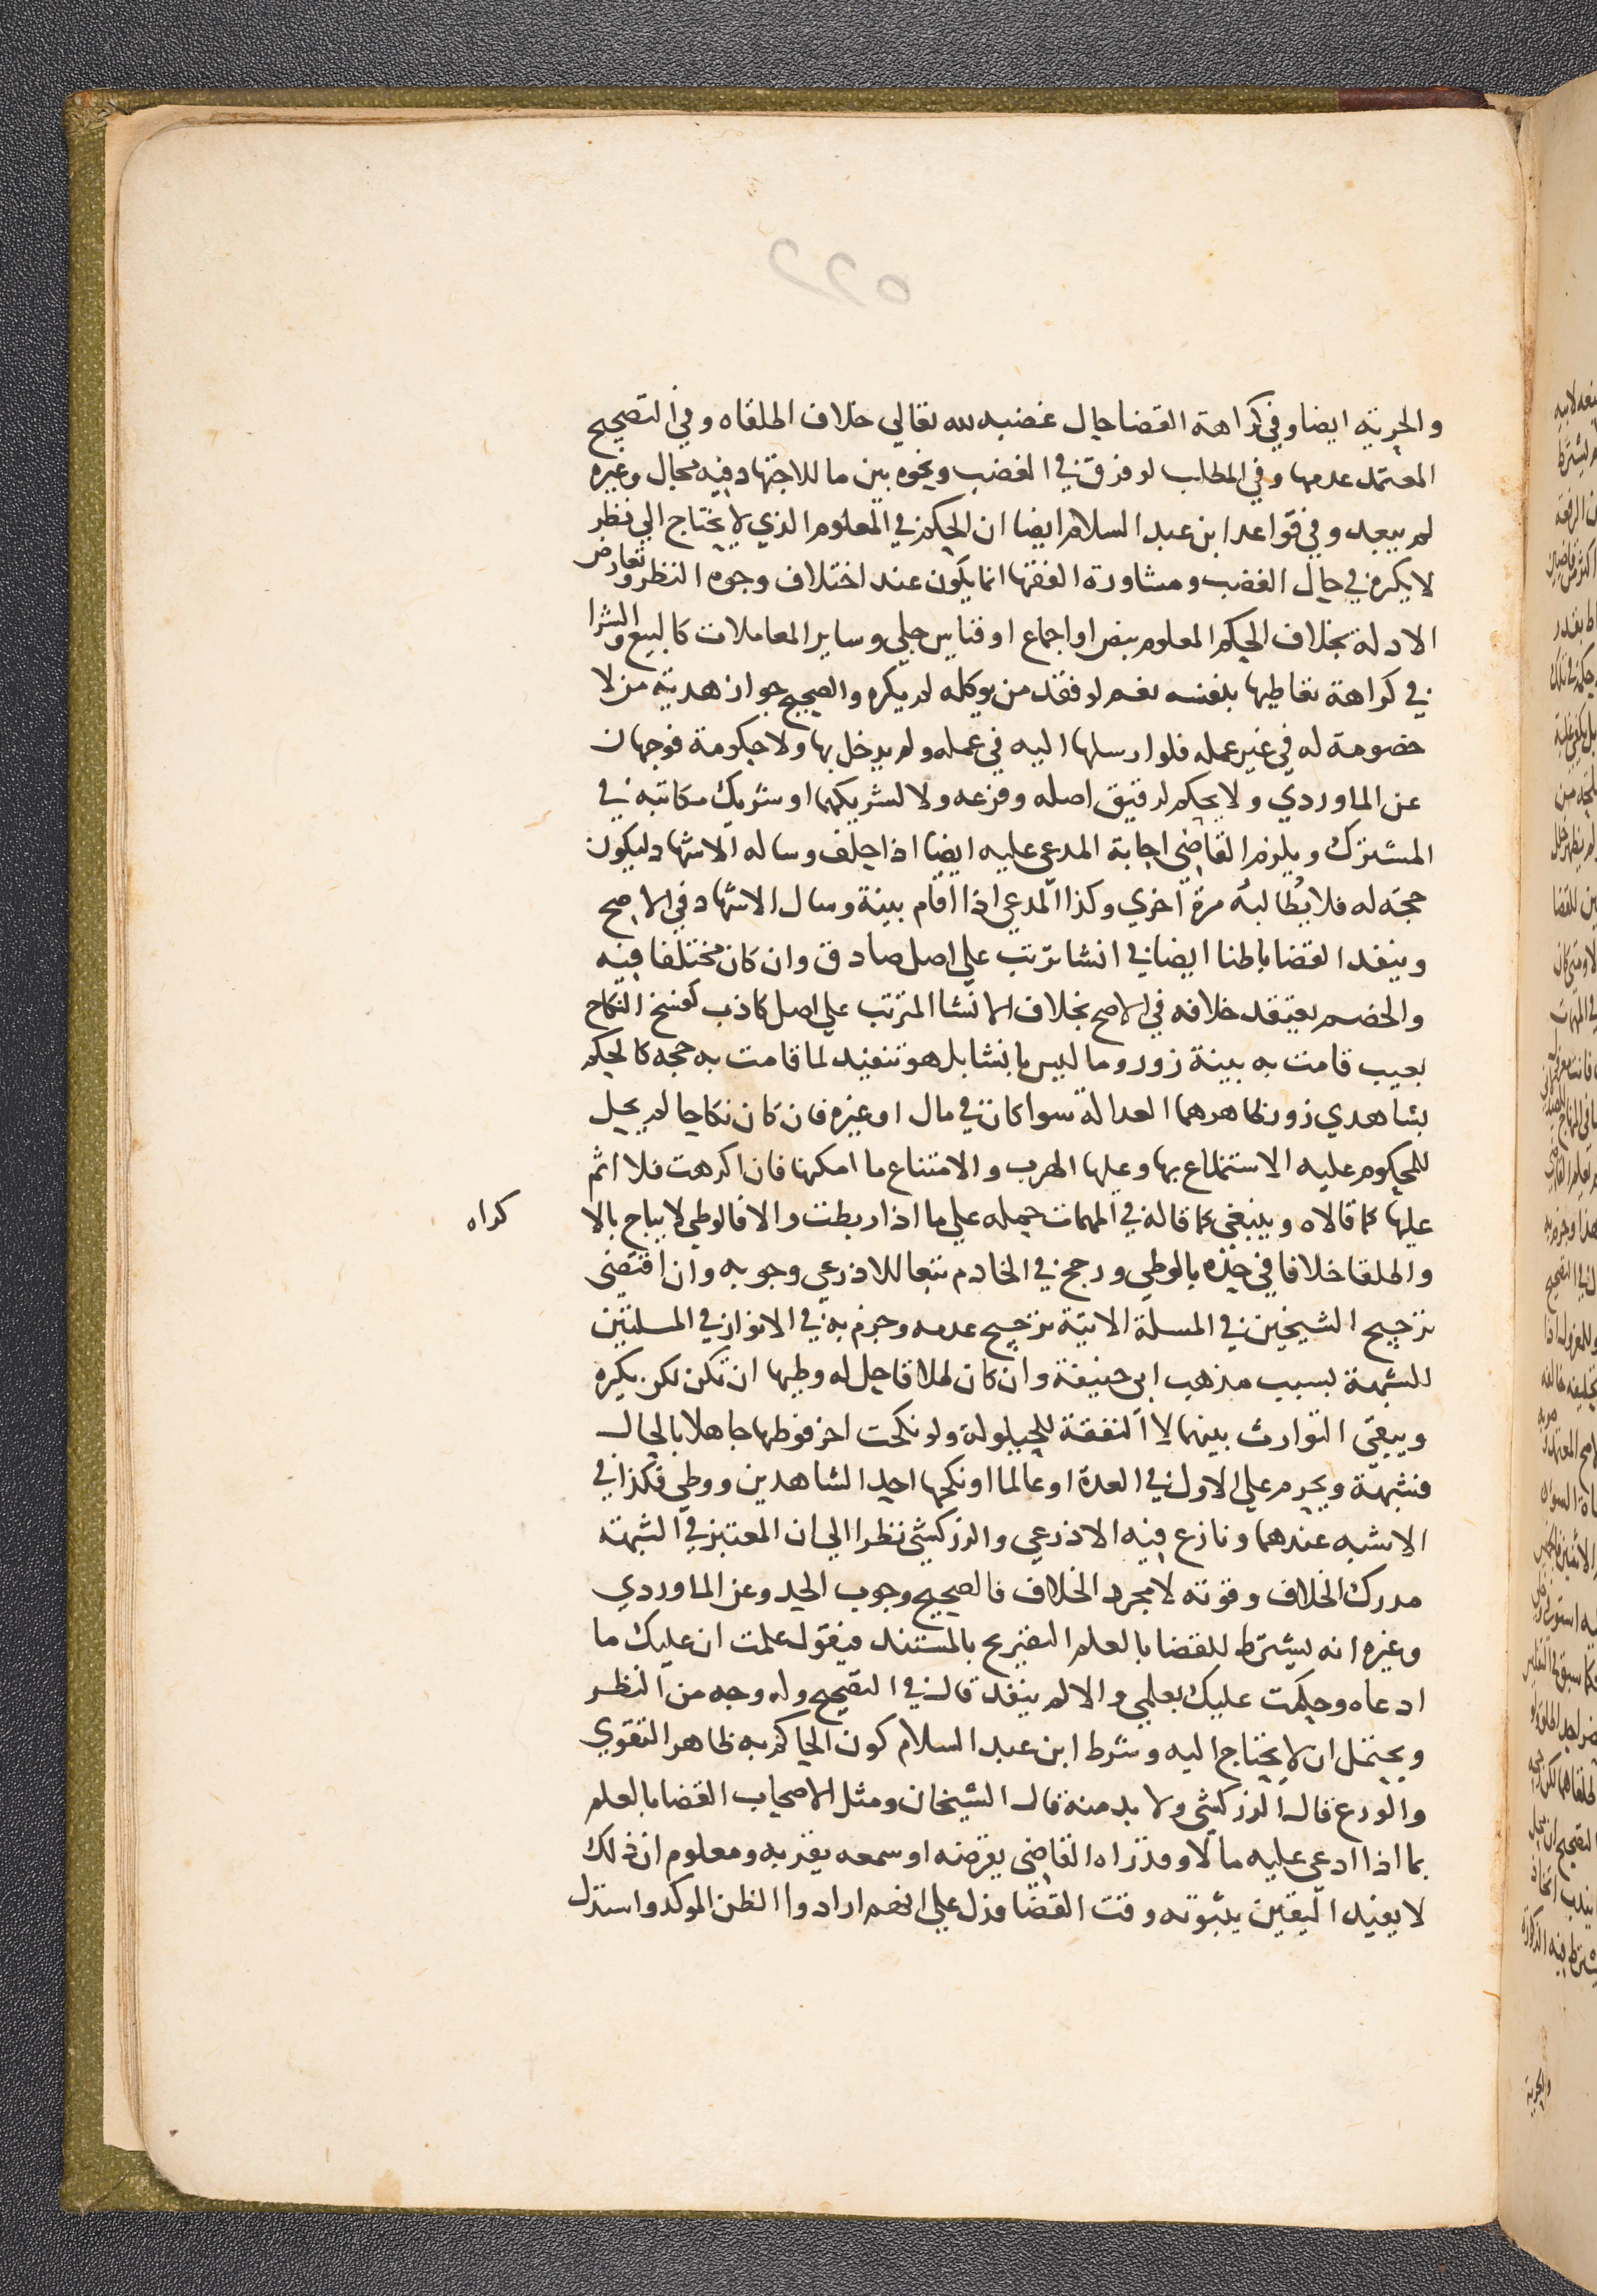 ٥٢٢
والحرية ايضا وفي كراهة القضا حال غضبه لله تعالي خلاف اطلقاه وفي التصحيح
المعتمد عدمها وفي المطلب لو فرق في الغضب ونحوه بين ما للاجتهاد فيه مجال وغيره
لم يبعد وفي قواعد ابن عبد السلام ايضا ان الحكم في المعلوم الذي لا يحتاج الي نظر
لا يكره في حال الغضب ومشاورة الفقها انما يكون عند اختلاف وجوه النظر وتعارض
الادلة بخلاف الحكم المعلوم بنص او اجماع او قياس جلي وساير المعاملات كالبيع والشرا
في كراهة تعاطيها بنفسه نعم لو فقد من يوكله لم يكره والصحيح جواز هدية من لا
خصومة له في غير عمله فلو ارسلها اليه في عمله ولم يدخل بها ولا حكومة فوجهان
عن الماوردي ولا يحكم لرقيق اصله وفرعه ولا لشريكهما او شريك مكاتبه في
المشترك ويلزم القاضي اجابة المدعي عليه ايضا اذا حلف وساله الاشهاد ليكون
حجة له فلا يُطالبهُ مرة اخري وكذا المدعي اذا اقام بينة وسال الاشهاد في الاصح
وينفذ القضا باطنا ايضا في انشا ترتب علي اصل صادق وان كان مختلفا فيه
والخصم يعتقد خلافه في الاصح بخلاف الانشا المترتب علي اصل كاذب كفسخ النكاح
بعيب قامت به بينة زور وما ليس بانشا بل هو تنفيذ لما قامت به حجه كالحكم
بشاهدي زور ظاهرهما العدالة سوا كان في مال او غيره فان كان نكاحا لم يحل
للمحكوم عليه الاستمتاع بها وعليها الهرب والامتناع ما امكنها فان اكرهت فلا اثم
عليها كما قالاه وينبغي كما قاله في المهمات حمله علي ما اذا ربطت والا فالوطي لا يباح بالا
كراه
واطلقا خلافا في حده بالوطي ورجح في الخادم تبعا للاذرعي وجوبه وان اقتضي
ترجيح الشيخين في المسلة الاتية ترجيح عدمه وجزم به في الانوار في المسلتين
للشبهة بسبب مذهب ابي حنيفة وان كان طلاقا حل له وطيها ان تمكن لكن يكره
ويبقي التوارث بينهما لا النفقة للحيلولة ولو نكحت اخر فوطيها جاهلا بالحال
فشبهة ويحرم علي الاول في العدة او عالما او نكحها احد الشاهدين ووطي فكذا في
الاشبه عندهما ونازع فيه الاذرعي والزركشي نظرا الي ان المعتبر في الشبهة
مدرك الخلاف وقوته لا مجرد الخلاف فالصحيح وجوب الحد وعن الماوردي
وغيره انه يشترط للقضا بالعلم التصريح بالمستند فيقول علمت ان عليك ما
ادعاه وحكمت عليك بعلمي والا لم ينفذ قال في التصحيح وله وجه من النظر
ويحتمل ان لا يحتاج اليه وشرط ابن عبد السلام كون الحاكم به ظاهر التقوي
والورع قال الزركشي ولا بد منه قال الشيخان ومثل الاصحاب القضا بالعلم
بما اذا ادعي عليه مالا وقد راه القاضي يقرضه او سمعه يقر به ومعلوم ان ذلك
لا يفيد اليقين بثبوته وقت القضا فدل علي انهم ارادوا الظن الموكد واستدل